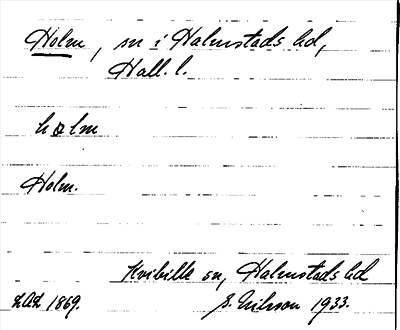 Holm, sn i Halmstads hd,
Hall. l.
hɷlm
Holm.
Kvibille sn, Halmstads hd
LAL 1869. E. Nilsson 1933.